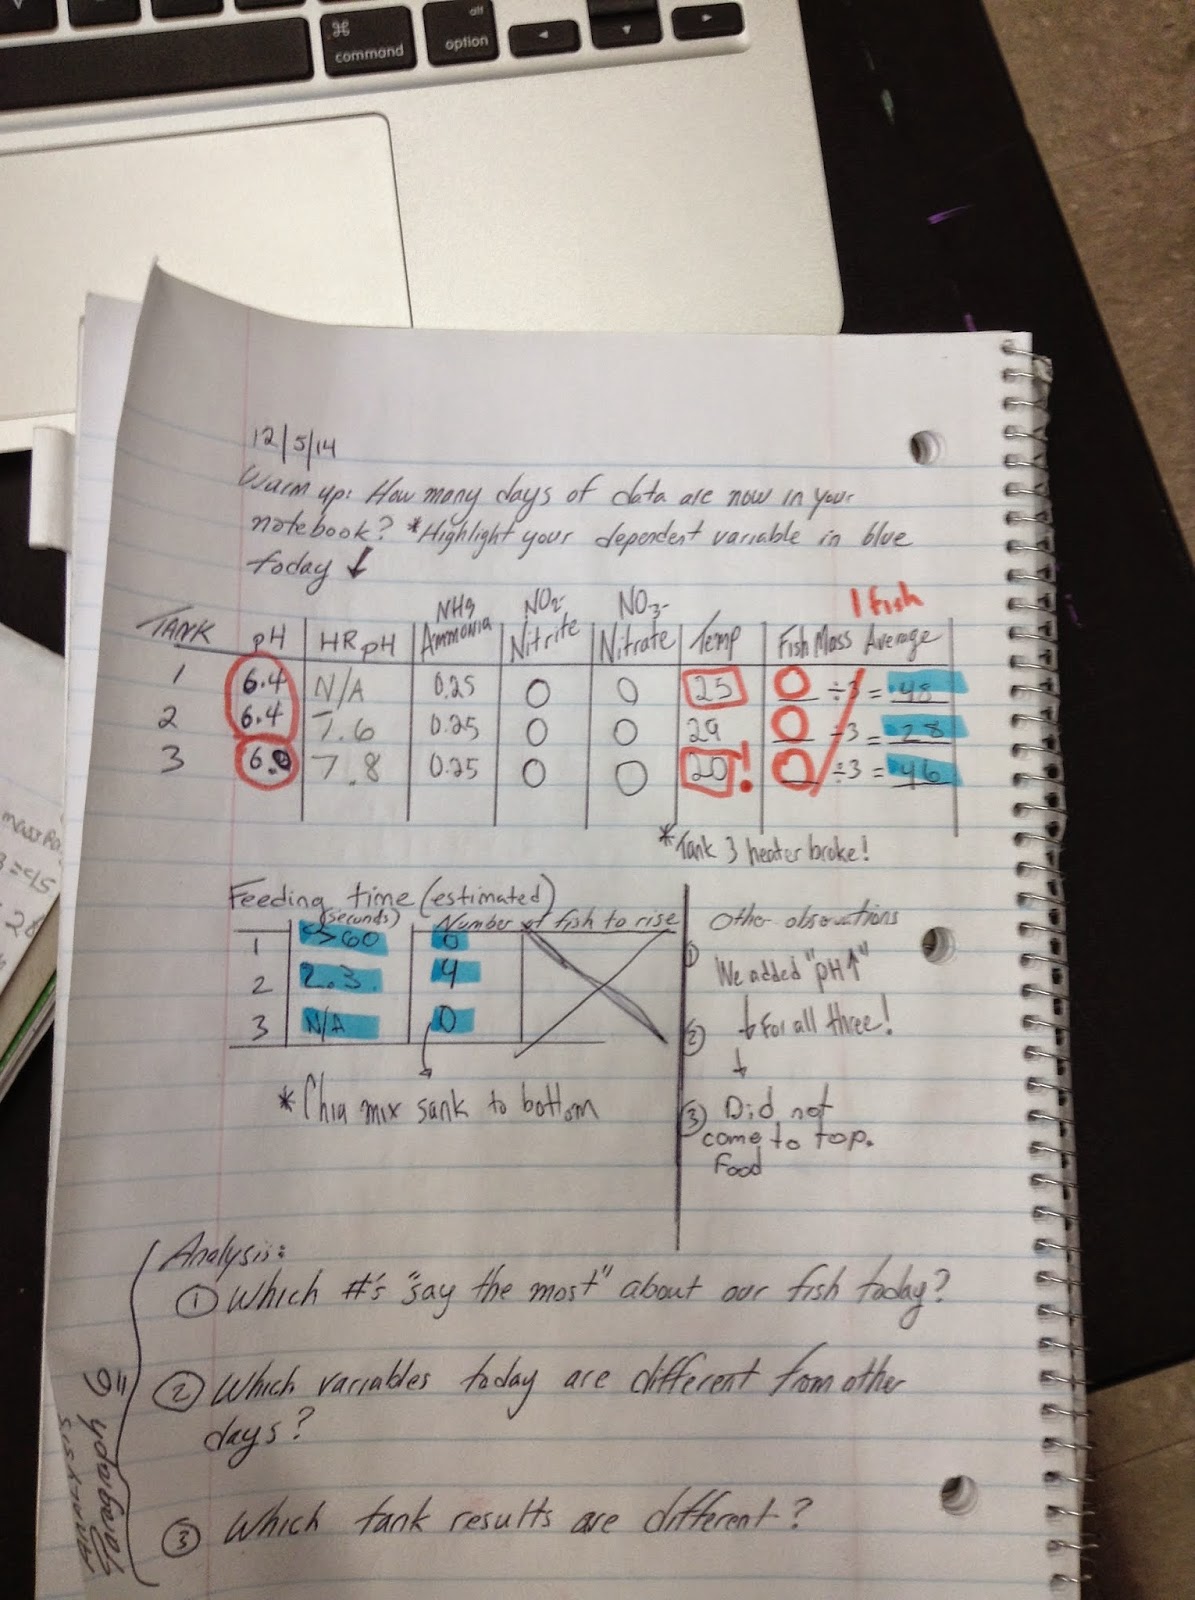 ⌘
command
alt
option
12/5/14
Warm up: How many days of data are now in your
notebook? *Highlight your dependent variable in blue
today ↓
1 fish
TANK | pH | HR pH | NH3 Ammonia | NO2- Nitrite | NO3- Nitrate | Temp | Fish Mass Average
1 | 6.4 | N/A | 0.25 | 0 | 0 | 25 | 0 ÷3 = .48
2 | 6.4 | 7.6 | 0.25 | 0 | 0 | 29 | 0 ÷3 = .28
3 | 6.0 | 7.8 | 0.25 | 0 | 0 | 20! | 0 ÷3 = .46
*Tank 3 heater broke!
Feeding time (estimated)
(seconds) Number of fish to rise
1 >60 0
2 2.3 4
3 N/A 0
*Chia mix sank to bottom
Other observations
① We added "pH↑"
② ↳ For all three!
↓
③ Did not
come to top.
Food
Analysis:
① Which #'s "say the most" about our fish today?
② Which variables today are different from other
days?
③ Which tank results are different?
ANALYSIS
Paragraph